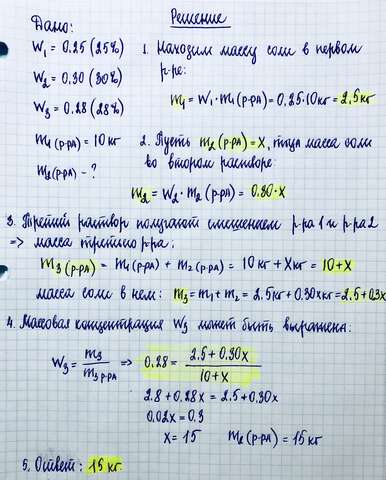 Решение
Дано:
W₁ = 0.25 (25%)
W₂ = 0.30 (30%)
W₃ = 0.28 (28%)
m₁ (р-ра) = 10 кг
m₂ (р-ра) - ?
1. Находим массу соли в первом
р-ре:
m₁ = W₁ · m₁ (р-ра) = 0.25 · 10 кг = 2,5 кг
2. Пусть m₂ (р-ра) = x, тогда масса соли
во втором растворе:
m₂ = W₂ · m₂ (р-ра) = 0.30 · x
3. Третий раствор получают смешением р-ра 1 и р-ра 2
=> масса третьего р-ра:
m₃ (р-ра) = m₁ (р-ра) + m₂ (р-ра) = 10 кг + x кг = 10 + x
масса соли в нем: m₃ = m₁ + m₂ = 2,5 кг + 0.30x кг = 2,5 + 0.3x
4. Массовая концентрация W₃ может быть выражена:
W₃ = m₃ / m₃ р-ра => 0.28 = 2.5 + 0.30x / 10 + x
2.8 + 0.28x = 2.5 + 0.30x
0.02x = 0.3
x = 15 m₂ (р-ра) = 15 кг
5. Ответ: 15 кг